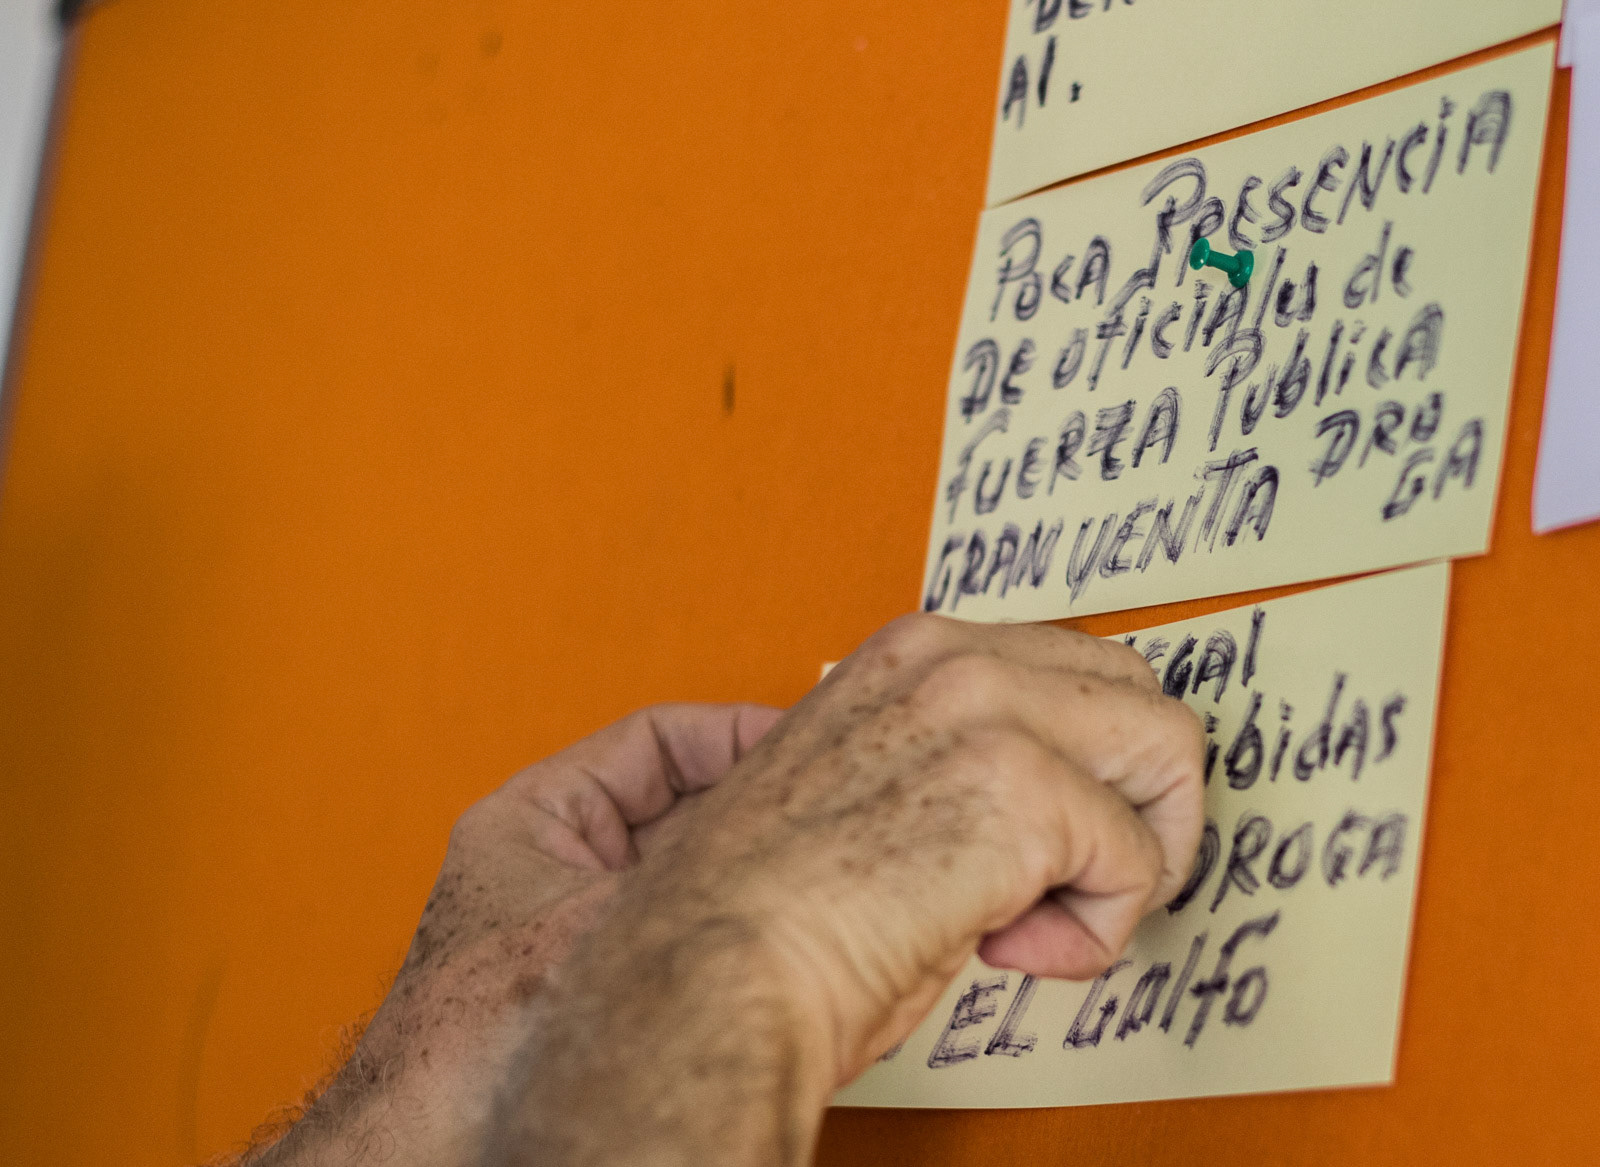 AI.
POCA PRESENCIA
DE oficiales de
FUERZA Publica
GRAN VENTA DROGA
bidas
DROGA
EL Golfo